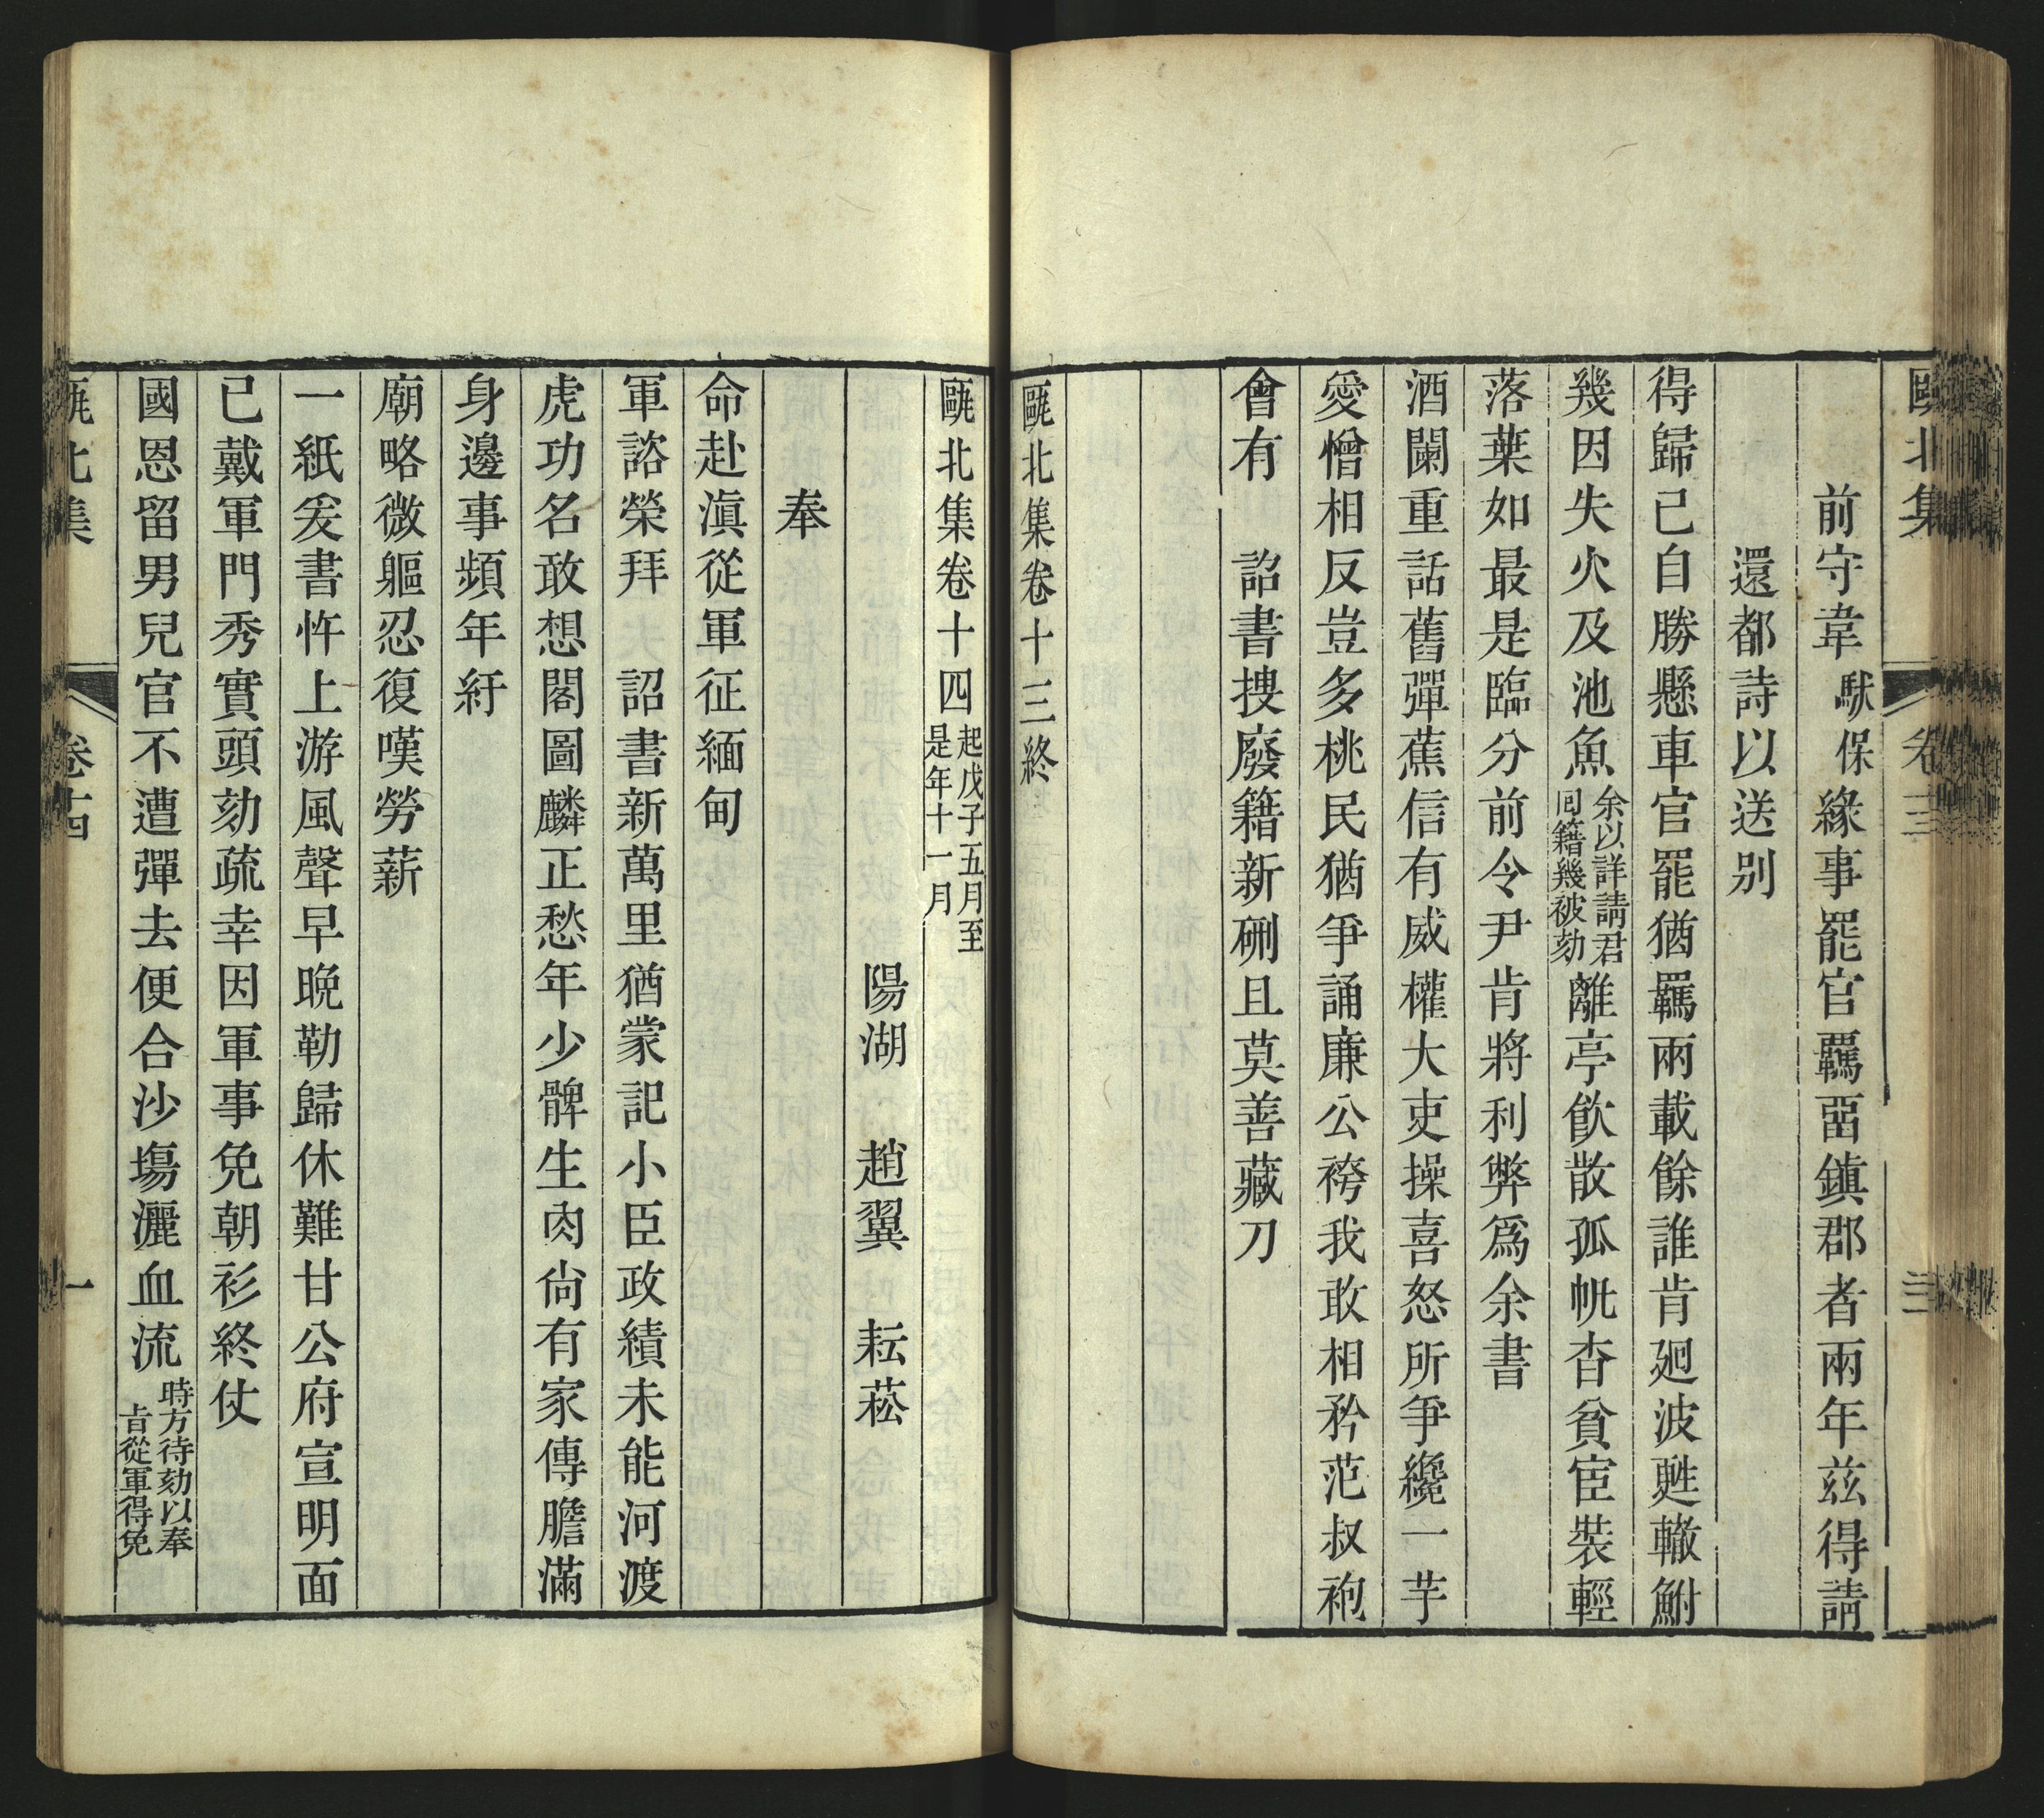 甌北集 卷十三
前守韋馱保緣事罷官羈畱鎮郡者兩年兹得請
還都詩以送别
得歸已自勝懸車官罷猶羈兩載餘誰肯廻波甦轍鮒
幾因失火及池魚余以詳請君
囘籍幾被劾離亭飲散孤帆杳貧宦裝輕
落葉如最是臨分前令尹肯將利弊為余書
酒闌重話舊彈蕉信有威權大吏操喜怒所爭纔一芋
愛憎相反豈多桃民猶爭誦廉公袴我敢相矜范叔袍
會有 詔書搜廢籍新硎且莫善藏刀
甌北集卷十三終
甌北集卷十四起戊子五月至
是年十一月
陽湖 趙翼 耘菘
奉
命赴滇從軍征緬甸
軍諮榮拜 詔書新萬里猶蒙記小臣政績未能河渡
虎功名敢想閣圖麟正愁年少髀生肉尙有家傳膽滿
身邊事頻年紆
廟略微軀忍復嘆勞薪
一紙爰書忤上游風聲早晚勒歸休難甘公府宣明面
已戴軍門秀實頭劾疏幸因軍事免朝衫終仗
國恩留男兒官不遭彈去便合沙塲灑血流時方待劾以奉
旨從軍得免
甌北集 卷十四 一